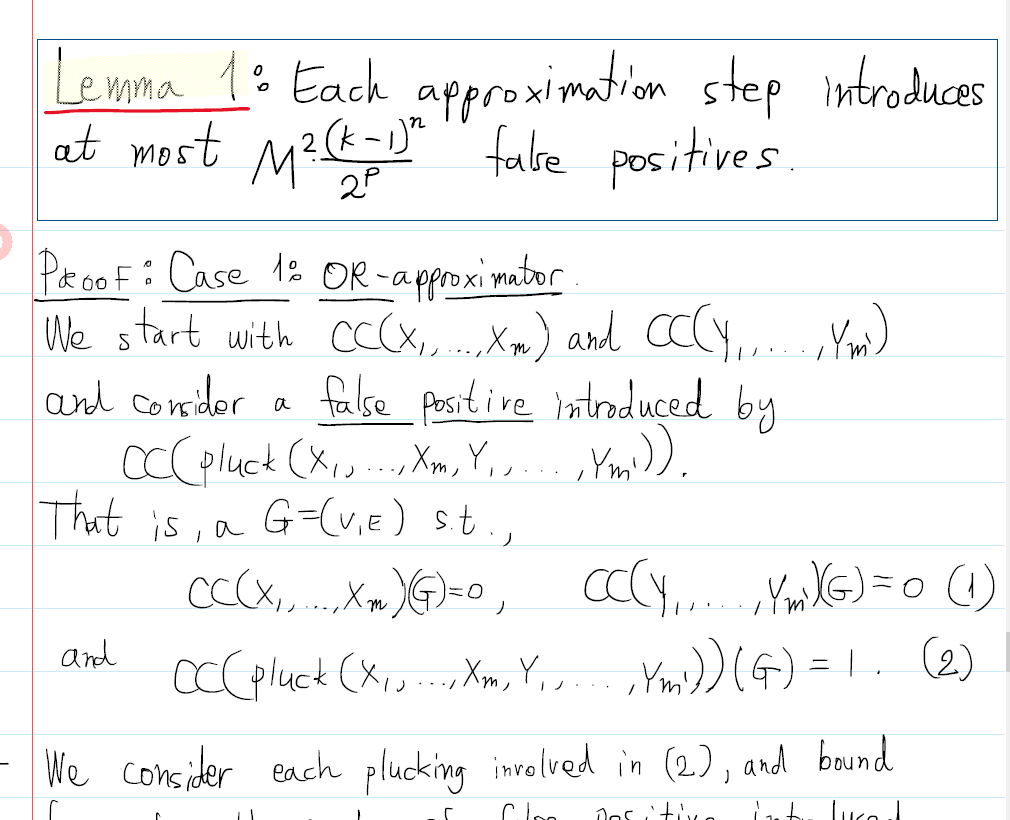 Lemma 1: Each approximation step introduces
at most M² (k-1)ⁿ / 2ᵖ false positives.
Proof: Case 1: OR-approximator.
We start with CC(X₁,...,Xₘ) and CC(Y₁,...,Yₘ')
and consider a false positive introduced by
CC(pluck(X₁,...,Xₘ,Y₁,...,Yₘ')).
That is, a G=(V,E) s.t.,
CC(X₁,...,Xₘ)(G)=0, CC(Y₁,...,Yₘ')(G)=0 (1)
and CC(pluck(X₁,...,Xₘ,Y₁,...,Yₘ'))(G)=1. (2)
We consider each plucking involved in (2), and bound
false positive introduced